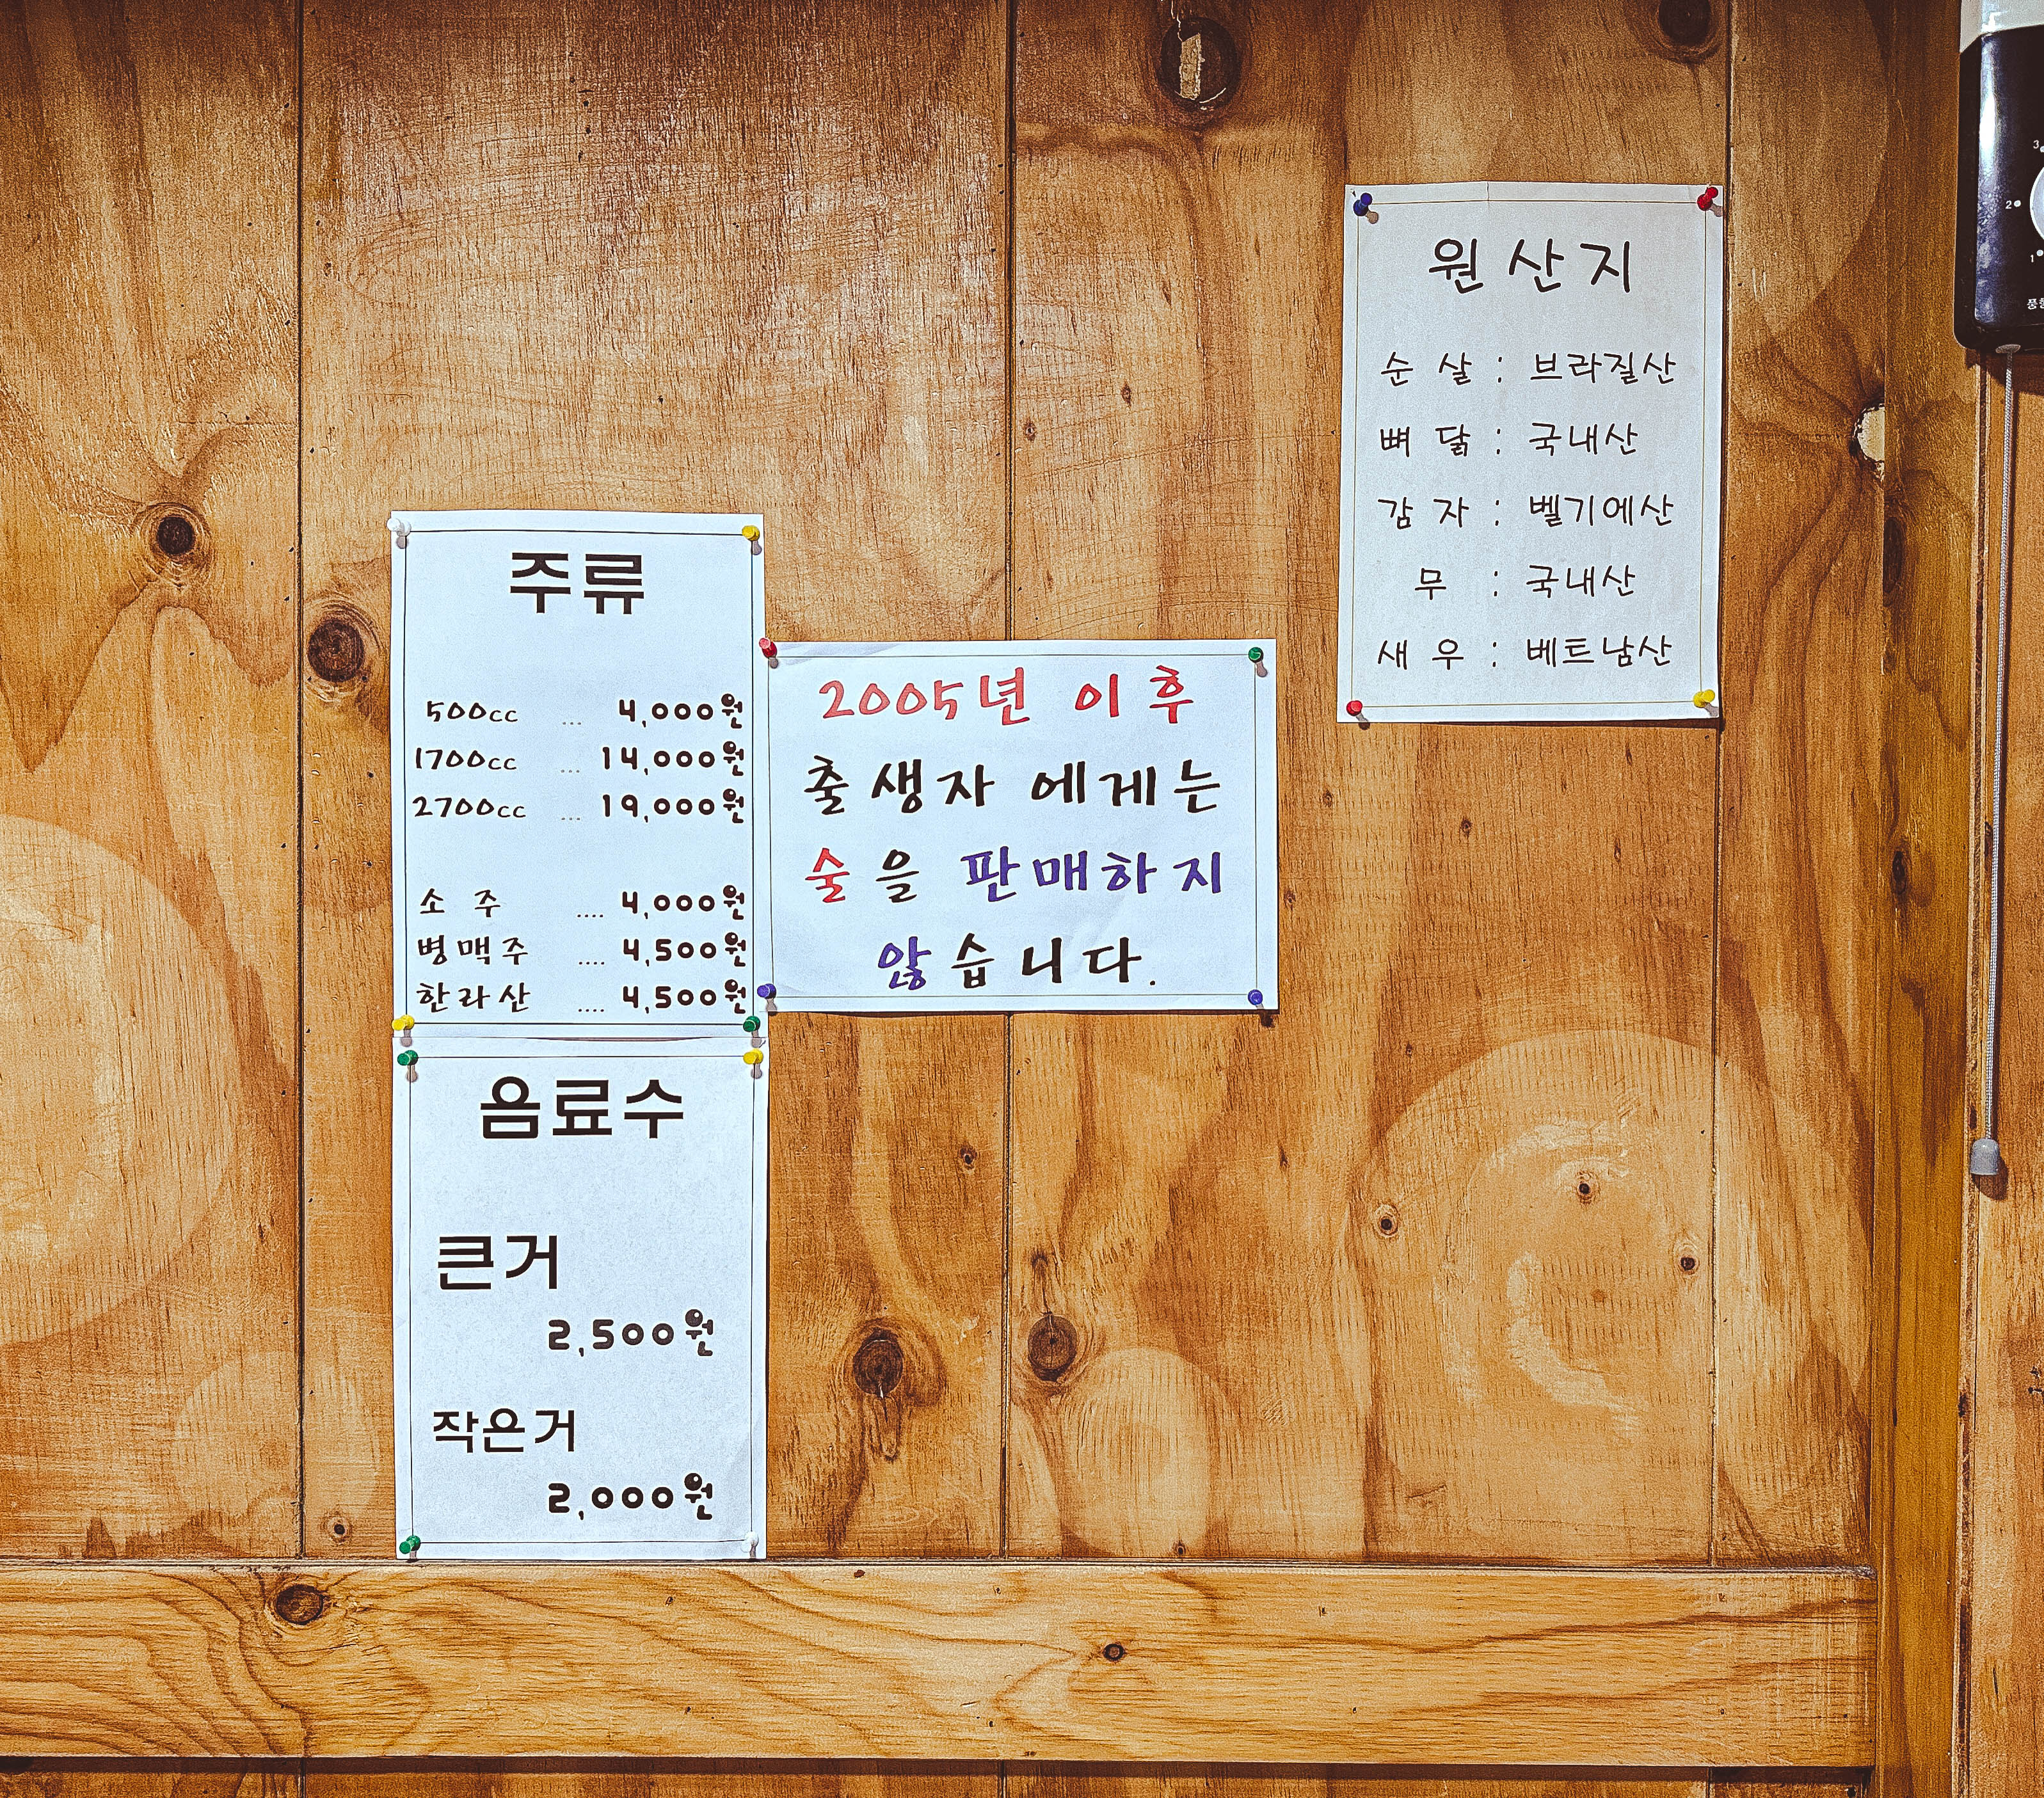 주류
500cc ... 4,000원
1700cc ... 14,000원
2700cc ... 19,000원
소 주 .... 4,000원
병맥주 .... 4,500원
한라산 .... 4,500원
음료수
큰거
2,500원
작은거
2,000원
2005년 이후
출생자 에게는
술을 판매하지
않습니다.
원산지
순 살 : 브라질산
뼈 닭 : 국내산
감 자 : 벨기에산
무 : 국내산
새 우 : 베트남산
3
2
1